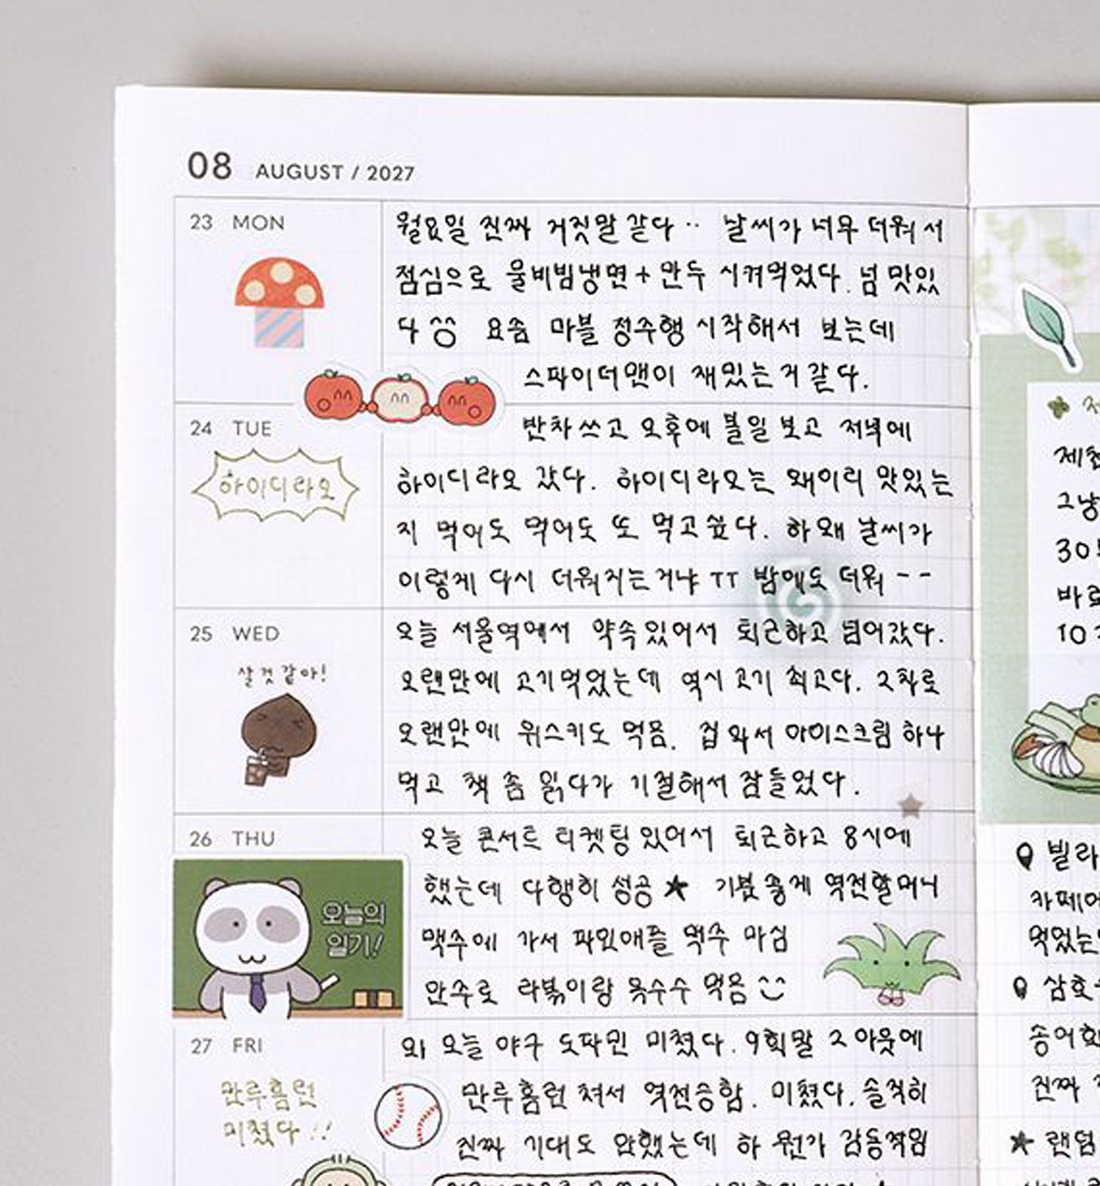 08 AUGUST / 2027
23 MON
월요일 진짜 거짓말 같다·· 날씨가 너무 더워서
점심으로 물비빔냉면+만두 시켜먹었다. 넘 맛있
다 요즘 마블 정주행 시작해서 보는데
스파이더맨이 재밌는거같다.
24 TUE
하이디라오
반차쓰고 오후에 볼일 보고 저녁에
하이디라오 갔다. 하이디라오는 왜이리 맛있는
지 먹어도 먹어도 또 먹고싶다. 하 왜 날씨가
이렇게 다시 더워지는거냐 TT 밤에도 더워 --
25 WED
살 것 같아!
오늘 서울역에서 약속있어서 퇴근하고 넘어갔다.
오랜만에 고기먹었는데 역시 고기 최고다. 2차로
오랜만에 위스키도 먹음. 집 와서 아이스크림 하나
먹고 책 좀 읽다가 기절해서 잠들었다.
26 THU
오늘의
일기!
오늘 콘서트 티켓팅있어서 퇴근하고 8시에
했는데 다행히 성공★ 기분좋게 역전할머니
맥주에 가서 파인애플 맥주 마심
안주로 라볶이랑 옥수수 먹음
27 FRI
만루홈런
미쳤다!!
와 오늘 야구 도파민 미쳤다. 9회말 2아웃에
만루홈런 쳐서 역전승함. 미쳤다. 솔직히
진짜 기대도 안했는데 하 뭔가 감동적임
제철
그냥
30
바로
10
빌라
카페에
먹었는
삼호
송어회
진짜
★ 랜덤